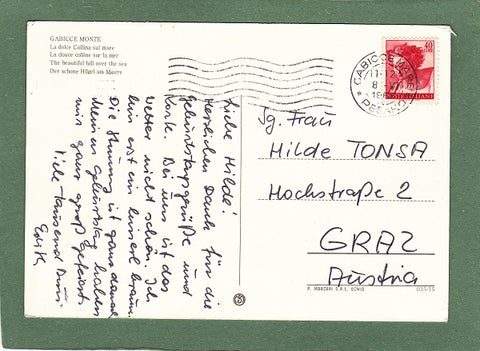 GABICCE MONTE
La dolce Collina sul mare
La douce colline sur la mer
The beautiful hill over the sea
Der schone Hügel am Meere
40
LIRE
POSTE ITALIANE
GABICCE MARE
11-12
8
PESARO
Liebe Hilde!
Herzlichen Dank für die
Geburtstagsgrüße und
Karte. Bei uns ist das
Wetter nicht schön. Ich
bin erst ein braun.
Die Stimmung ist ganz
Meinen Geburtstag haben
wir ganz groß gefeiert.
Viele tausend
Edith
Sg. Frau
Hilde TONSA
Hochstraße 2
GRAZ
Austria
P. MARZARI S.R.L. SCHIO